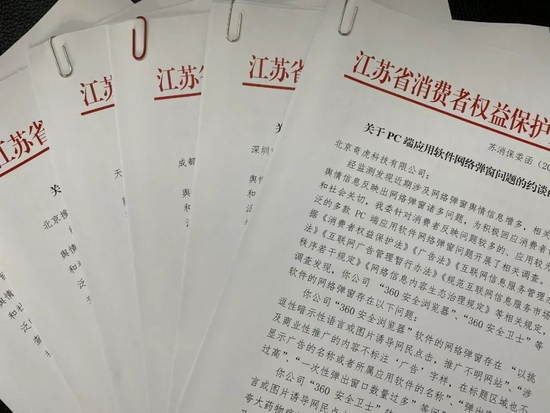 江苏省
北京
关
舆情
和
泛
江苏
天
江苏省
成都
江苏省
深圳
关
江苏省消费者权益保护
苏消保委函（20
关于 PC 端应用软件网络弹窗问题的约谈
北京奇虎科技有限公司：
经监测发现近期涉及网络弹窗舆情信息增多，相关
舆情信息反映出网络弹窗诸多问题，为积极回应消费者
和社会关切，我委针对消费者反映问题较多的，应用较为
泛的多款 PC 端应用软件网络弹窗问题开展了相关调查。
据《消费者权益保护法》《广告法》《互联网信息服务管理
法》《互联网广告管理暂行办法》《规范互联网信息服务市场
秩序若干规定》《网络信息内容生态治理规定》等相关规定，
调查发现，你公司“360 安全浏览器”、“360 安全卫士”等
软件的网络弹窗存在以下问题：
你公司“360 安全浏览器”软件的网络弹窗存在“以挑
逗性暗示性语言或图片诱导网民点击，推广不明网站”，“涉
及商业性推广的内容不标注‘广告’字样，在标题区域也不
显示广告的名称或者所属应用软件的名称”，“弹出
过高”，“一次性弹出窗口数量过多”等问
你公司“360 安全卫士”软
言或图片诱导网民点
夸大药物疗